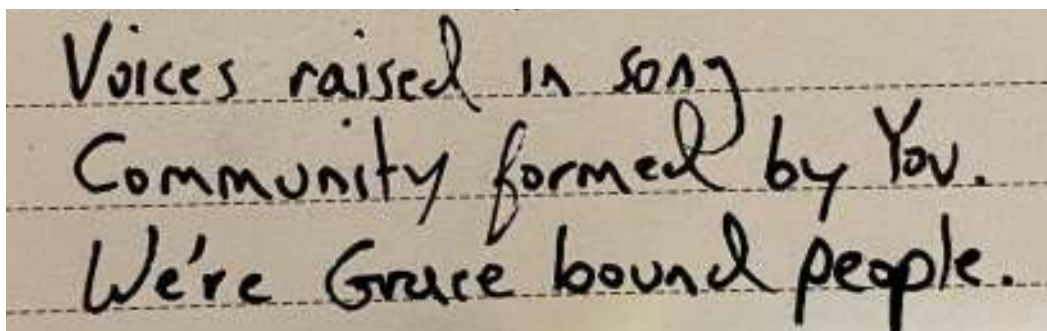 Voices raised in song
Community formed by You.
We're Grace bound people.